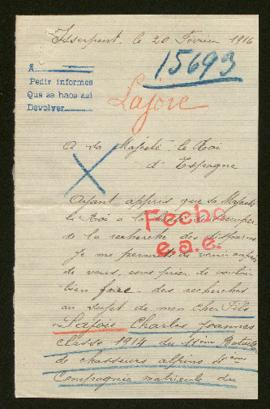 Isserpent, le 20 Février 1916
15693
A
Pedir informes
Que se haos asi
Devolver
Lajoie
A Sa Majesté le Roi
d'Espagne
Ayant appris que Sa Majesté
le Roi a la
de la recherche des disparus
je me permets de venir auprès
de vous, vous prier de vouloir
bien faire des recherches
au sujet de mon cher Fils
Fecho
e.a.e.
Lajoie Charles Joannes
classe 1914 du 11ème Bataillon
de chasseurs alpins
Compagnie matricule du